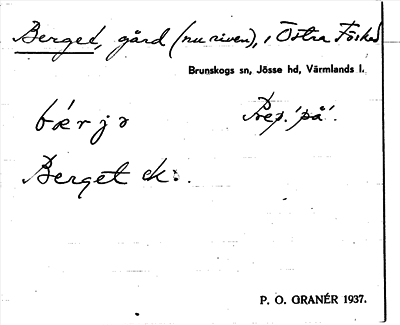 Berget, gård (nu riven), i Östra Fösked
Brunskogs sn, Jösse hd, Värmlands l.
bærjə Prep. 'på'.
Berget ek:.
P. O. GRANÉR 1937.